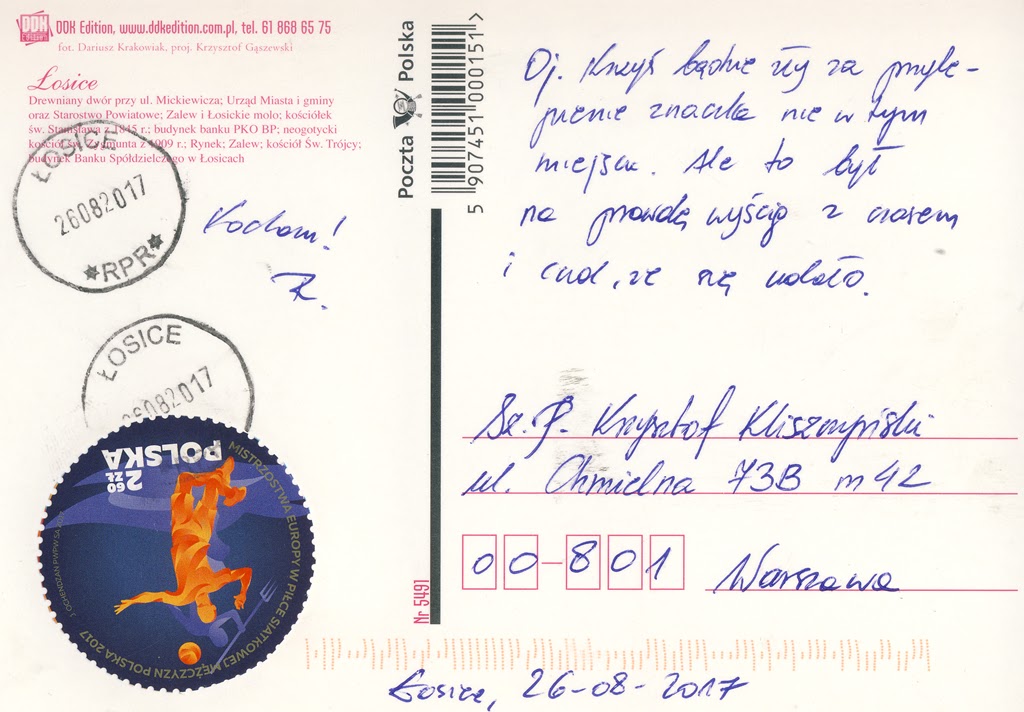 DDK Edition, www.ddkedition.com.pl, tel. 61 868 65 75
fot. Dariusz Krakowiak, proj. Krzysztof Gąszewski
Łosice
Drewniany dwór przy ul. Mickiewicza; Urząd Miasta i gminy
oraz Starostwo Powiatowe; Zalew i Łosickie molo; kościółek
św. Stanisława z 1845 r.; budynek banku PKO BP; neogotycki
kościół św. Zygmunta z 1909 r.; Rynek; Zalew; kościół Św. Trójcy;
budynek Banku Spółdzielczego w Łosicach
ŁOSICE
26082017
*RPR*
Kocham!
R.
ŁOSICE
26082017
POLSKA
2 60 ZŁ
MISTRZOSTWA EUROPY W PIŁCE SIATKOWEJ MĘŻCZYZN POLSKA 2017
J. OCHENDZAN PWPW SA 2017
Poczta Polska
5 907451 000151 >
Nr 5491
Oj. Krzyś będzie zły za przyle-
pienie znaczka nie w tym
miejscu. Ale to był
na prawdę wyścig z czasem
i cud, że się udało.
Sz. P. Krzysztof Kliszczyński
ul. Chmielna 73B m 42
00-801 Warszawa
Łosice, 26-08-2017